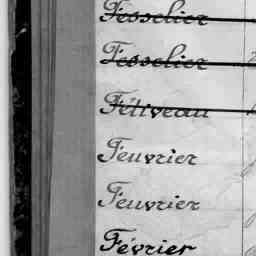 Fesselier
Fesselier
Fétiveau
Feuvrier
Feuvrier
Février